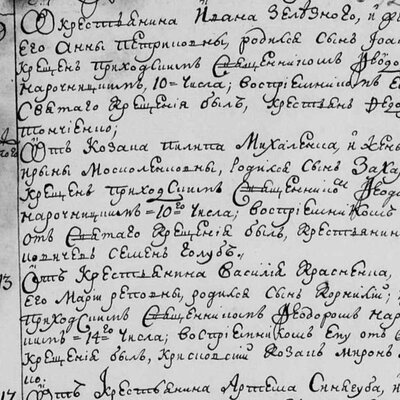 Отъ Крестьянина Ивана Зелѣзного, и
Его Анны Петриковны, родился сынъ Іоа
Крещенъ приходскимъ Священникомъ Ѳеодо
Нарочницкимъ, 10 = числа; воспріемникомъ
Святаго Крещенія былъ, Крестьянъ Ѳедо

Отъ Козака Пилипа Михаленка, и жены
родился сынъ Заха
Крещенъ приходскимъ Священникомъ Ѳеодо
Нарочницкимъ = 10го числа; воспріемникомъ
отъ Святаго Крещенія былъ, Крестьянин
Семенъ Голубъ.
13 Отъ Крестьянина Василія Красненка,
Его Маріи родился сынъ Корнилій;
приходскимъ Священникомъ Ѳеодоромъ Нар
= 14го числа; воспріемникомъ Ему отъ
Крещенія былъ, Козакъ Миронъ
ко.
Отъ Крестьянина Артема Синягуба, и